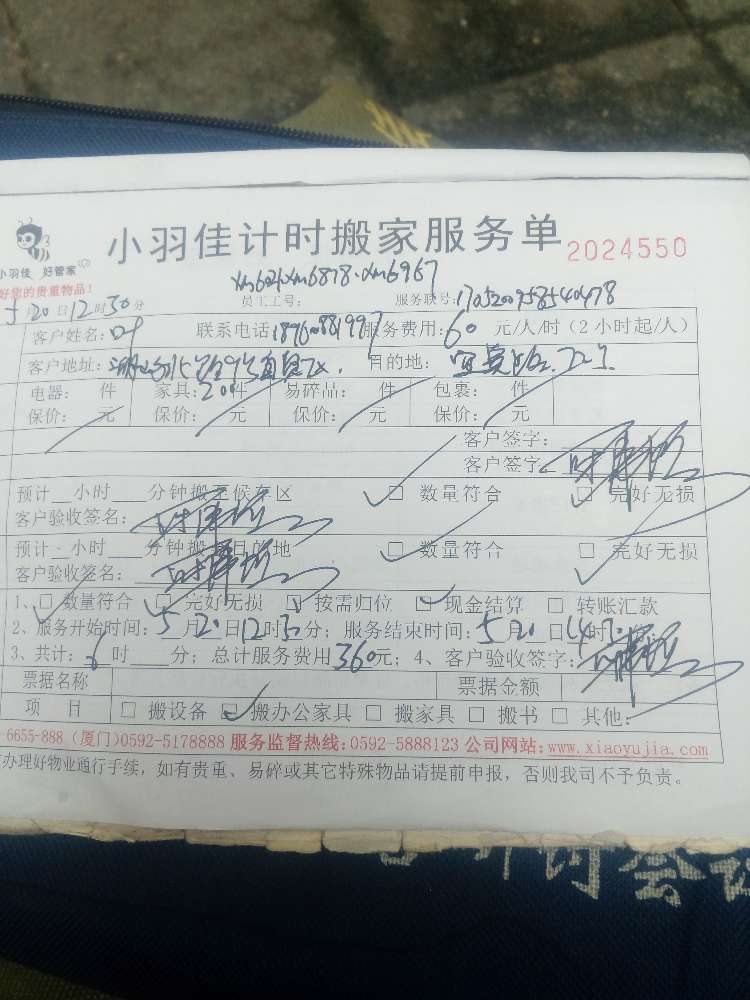 小羽佳计时搬家服务单 2024550
小羽佳 好管家
好您的贵重物品!
5月20日12时30分 员工工号: xm6878 xm6967 服务联号:
客户姓名:叶 联系电话: 服务费用:60元/人/时(2小时起/人)
客户地址: 目的地:
电器: 件 家具:20件 易碎品: 件 包裹: 件
保价: 元 保价: 元 保价: 元 保价: 元
客户签字:
客户签字:
预计__小时___分钟搬至候车区 □ 数量符合 □ 完好无损
客户验收签名:
预计__小时___分钟搬至目的地 □ 数量符合 □ 完好无损
客户验收签名:
1、□ 数量符合 □ 完好无损 □ 按需归位 □ 现金结算 □ 转账汇款
2、服务开始时间:5月20日12时30分;服务结束时间:5月20日14时30分;
3、共计:6时___分;总计服务费用360元;4、客户验收签字:
票据名称 票据金额
项 目 □ 搬设备 □ 搬办公家具 □ 搬家具 □ 搬书 □ 其他:
6655-888 (厦门)0592-5178888 服务监督热线:0592-5888123 公司网站:www.xiaoyujia.com
办理好物业通行手续,如有贵重、易碎或其它特殊物品请提前申报,否则我司不予负责。